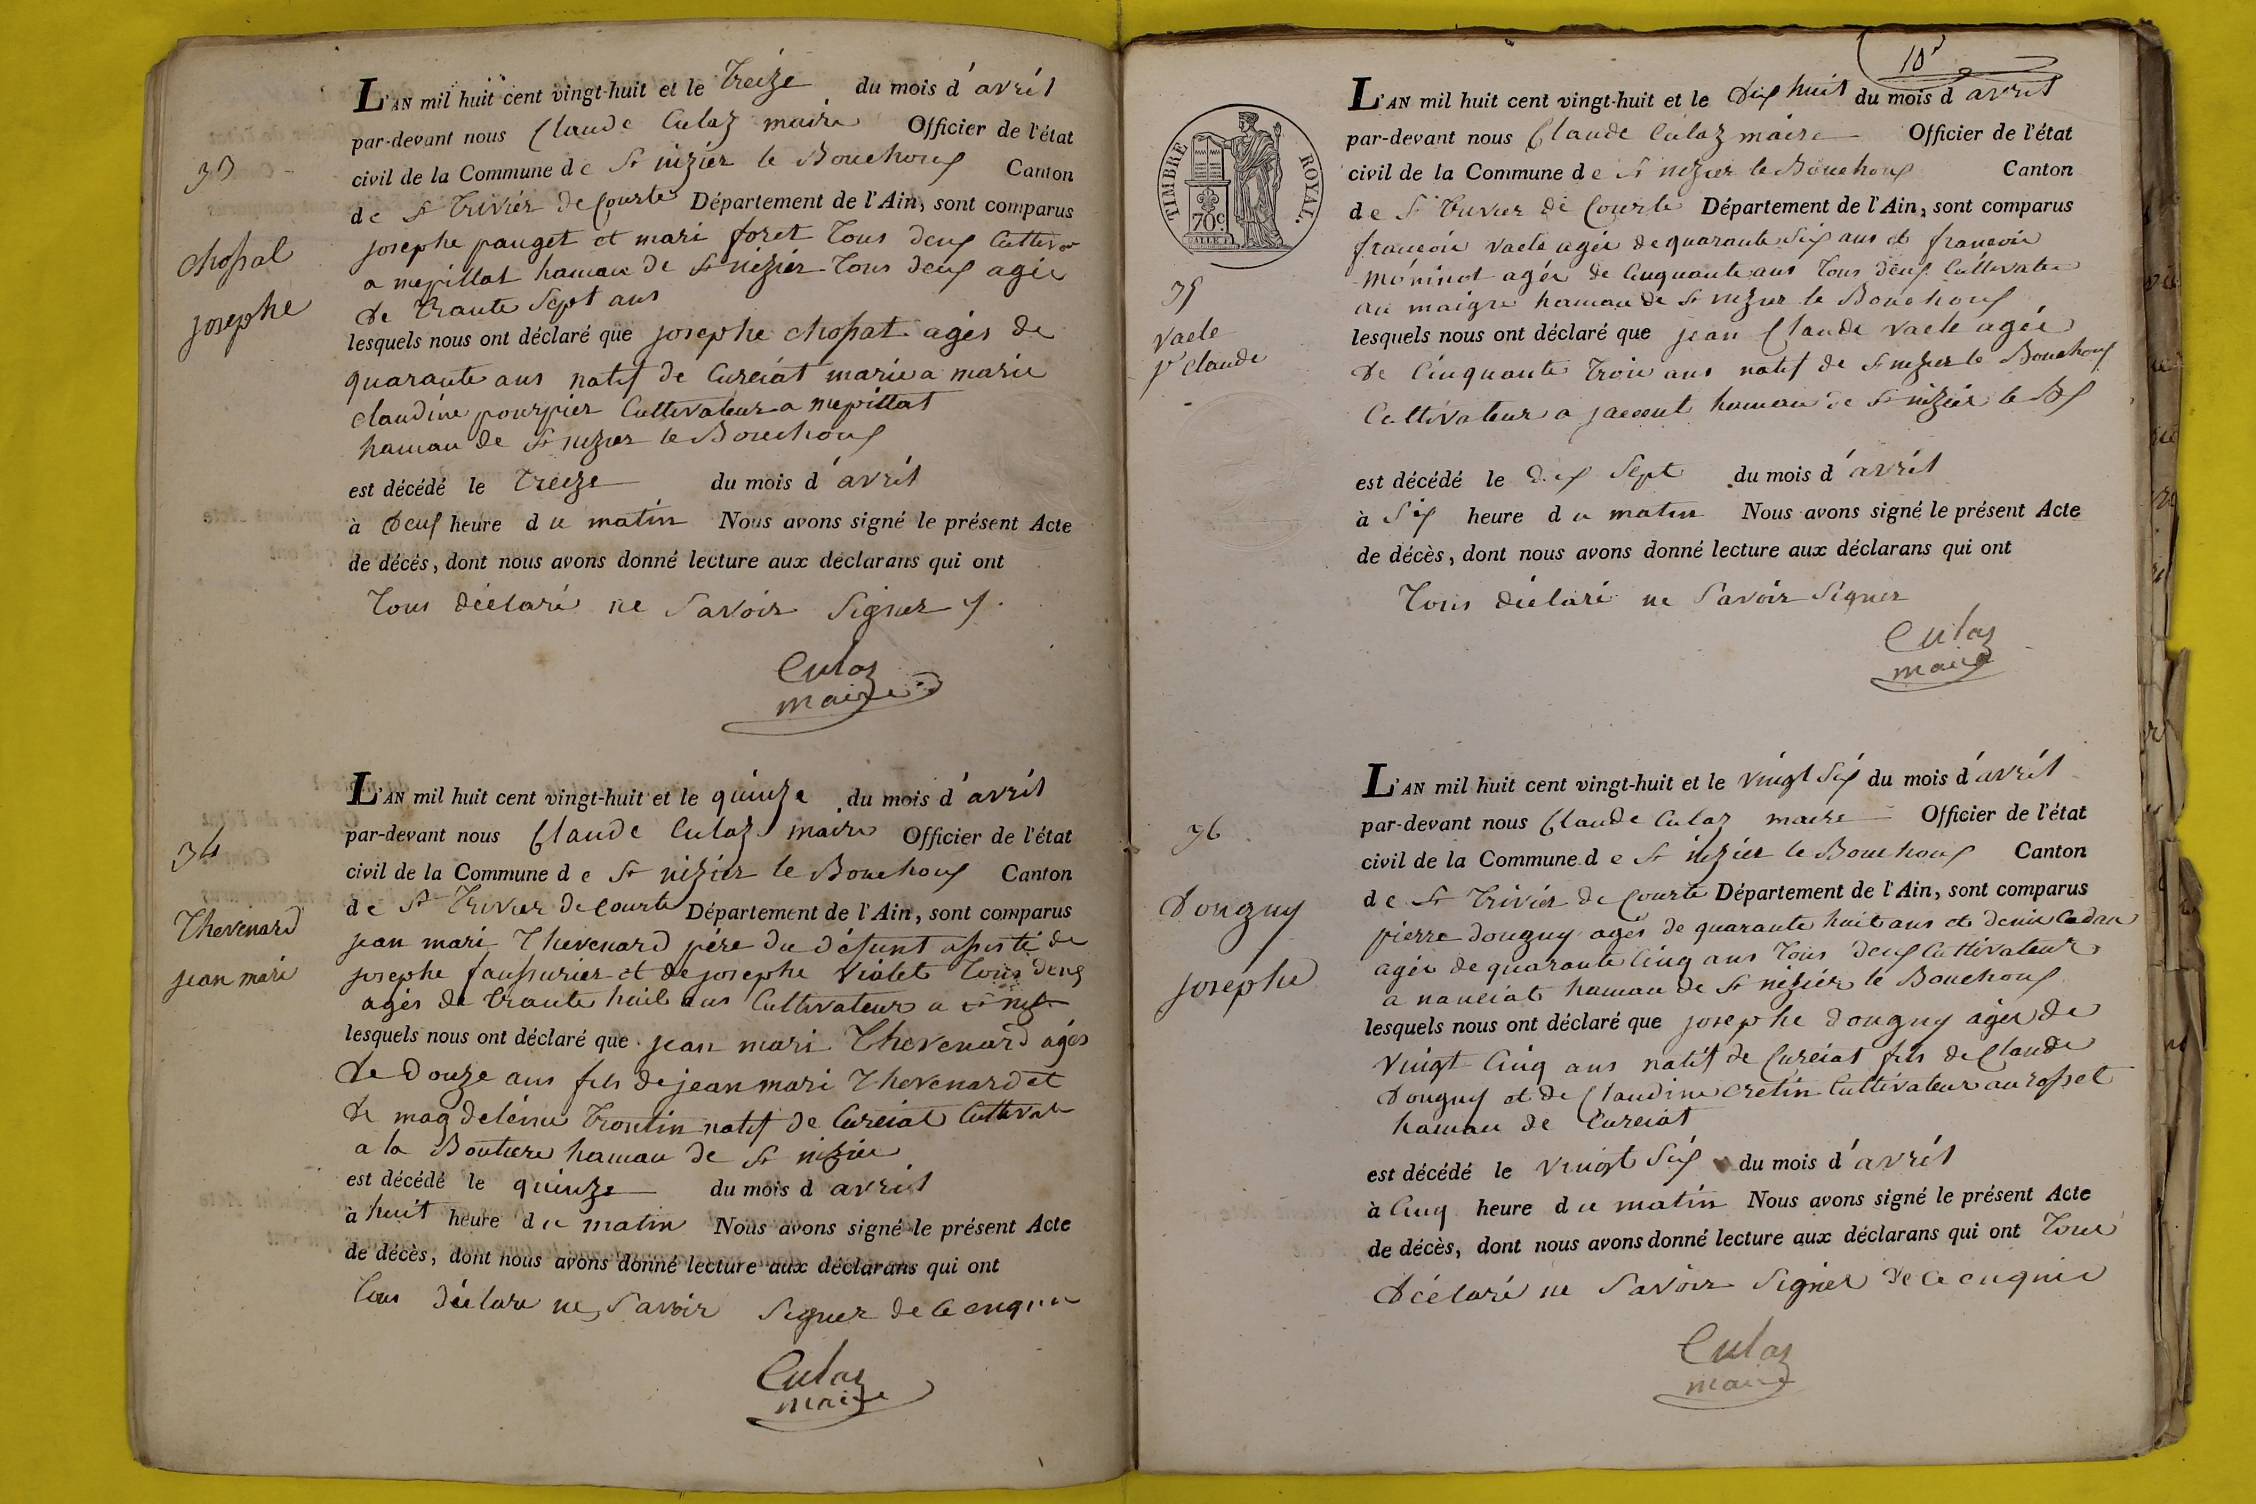 33
chossat
josephe
L'AN mil huit cent vingt-huit et le treize du mois d'avril
par-devant nous Claude Culaz maire Officier de l'état
civil de la Commune de St nizier le Bouchoux Canton
de St trivier de Courte Département de l'Ain, sont comparus
josephe pauget et mari foret tous deux Cultiv
a mepillat hamau de St nezier tous deux agée
de trante Sept ans
lesquels nous ont déclaré que josephe chossat agés de
quarante ans natif de Curciat mariea marie
claudine pourpier Cultivateur a mepillat
hamau de St nizier le Bouchoux
est décédé le treize du mois d'avril
à deux heure du matin Nous avons signé le présent Acte
de décès, dont nous avons donné lecture aux déclarans qui ont
tous déclaré ne Savoir Signer
Culaz
maire
34
Thevenard
jean mari
L'AN mil huit cent vingt-huit et le quinze du mois d'avril
par-devant nous Claude Culaz maire Officier de l'état
civil de la Commune de St nizier le Bouchoux Canton
de St trivier de Courte Département de l'Ain, sont comparus
jean mari Thevenard pére du défunt assisté de
josephe faussurier et de josephe violet tous deux
agés de trante huit ans Cultivateur a St niz
lesquels nous ont déclaré que jean mari Thevenard agés
de douze ans fils de jean mari Thevenard et
de magdeléine trontin natif de Curciat Cultivat
a la Boutiere hamau de St nizier
est décédé le quinze du mois d avril
à huit heure du matin Nous avons signé le présent Acte
de décès, dont nous avons donné lecture aux déclarans qui ont
tous déclare ne Savoir Signer de ce enquis
Culaz
maire
10
TIMBRE ROYAL.
70c
35
vaele
jn claude
L'AN mil huit cent vingt-huit et le dix huit du mois d avril
par-devant nous Claude Culaz maire Officier de l'état
civil de la Commune de St nizier le Bouchoux Canton
de St trivier de Courte Département de l'Ain, sont comparus
francoie vaele agée de quarante Six ans et francoie
moninot agée de Cinquante ans tous deux Cultivateur
au maigre hamau de St nizier le Bouchoux
lesquels nous ont déclaré que jean Claude vaele agée
de Cinquante trois ans natif de St nizier le Bouchoux
Cultivateur a hamau de St nizier le Bx
est décédé le dix Sept du mois d'avril
à Six heure du matin Nous avons signé le présent Acte
de décès, dont nous avons donné lecture aux déclarans qui ont
tous déclaré ne Savoir Signer
Culaz
maire
36
Donguy
josephe
L'AN mil huit cent vingt-huit et le vingt Six du mois d'avril
par-devant nous Claude Culaz maire Officier de l'état
civil de la Commune de St nizier le Bouchoux Canton
de St trivier de Courte Département de l'Ain, sont comparus
pierre donguy agés de quarante huit ans et denis
agée de quarante Cinq ans tous deux Cultivateur
a nanciat hamau de St nizier le Bouchoux
lesquels nous ont déclaré que josephe donguy agée de
vingt Cinq ans natif de Curciat fils de Claude
Donguy et de Claudine cretin Cultivateur au rosset
hamau de Curciat
est décédé le vingt Six du mois d'avril
à Cinq heure du matin Nous avons signé le présent Acte
de décès, dont nous avons donné lecture aux déclarans qui ont tous
déclaré ne Savoir Signer de ce enquis
Culaz
maire